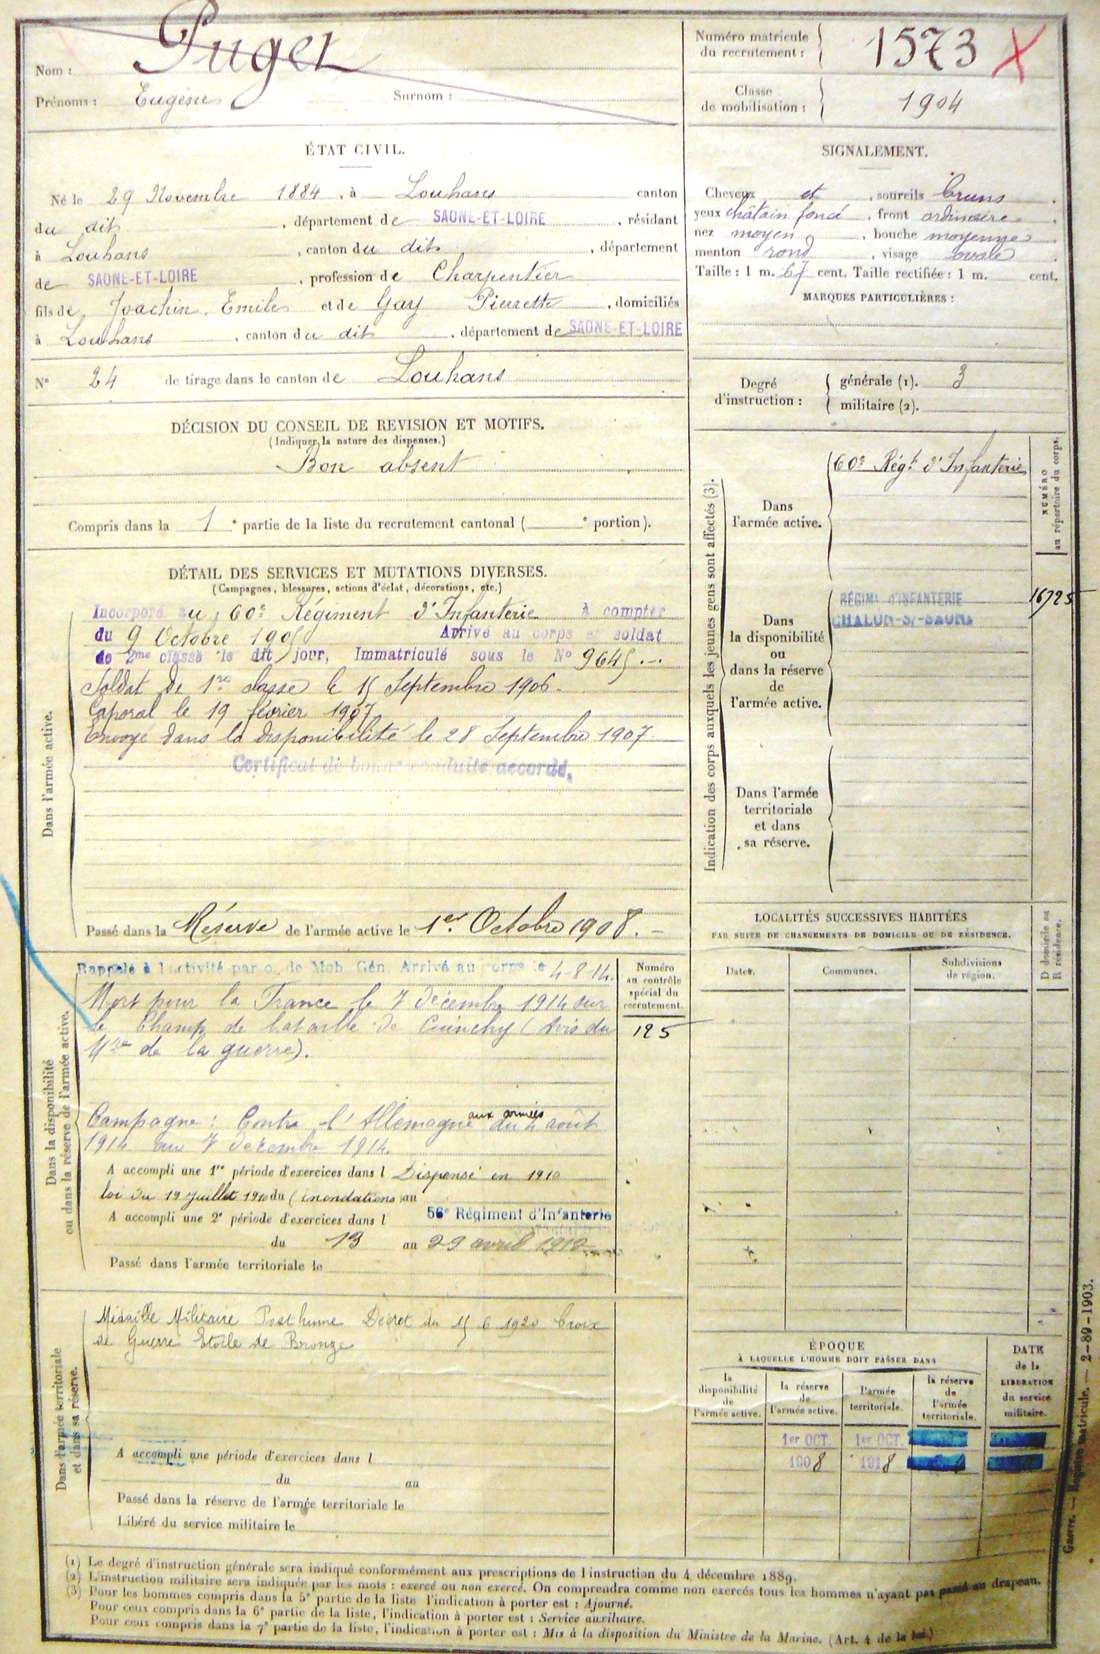 Nom : Puget
Prénoms : Eugène Surnom :
Numéro matricule du recrutement : 1573 X
Classe de mobilisation : 1904
ÉTAT CIVIL.
Né le 29 Novembre 1884, à Louhans canton
du dit, département de SAONE-ET-LOIRE, résidant
à Louhans, canton du dit, département
de SAONE-ET-LOIRE, profession de Charpentier
fils de Joachin Emile et de Gay Pierrette, domiciliés
à Louhans, canton du dit, département de SAONE-ET-LOIRE
N° 24 de tirage dans le canton de Louhans
SIGNALEMENT.
Cheveux et, sourcils bruns
yeux châtain foncé, front ordinaire
nez moyen, bouche moyenne
menton rond, visage ovale
Taille : 1 m. 67 cent. Taille rectifiée : 1 m. cent.
MARQUES PARTICULIÈRES :
Degré d'instruction : générale (1). 3
militaire (2).
DÉCISION DU CONSEIL DE REVISION ET MOTIFS.
(Indiquer la nature des dispenses.)
Bon absent
Compris dans la 1e partie de la liste du recrutement cantonal ( e portion).
DÉTAIL DES SERVICES ET MUTATIONS DIVERSES.
(Campagnes, blessures, actions d'éclat, décorations, etc.)
Dans l'armée active.
Incorporé au 60e Régiment d'Infanterie à compter
du 9 Octobre 1905 Arrivé au corps et soldat
de 2me classe le dit jour, Immatriculé sous le N° 9645
Soldat de 1re classe le 15 Septembre 1906.
Caporal le 19 février 1907
Envoyé dans la disponibilité le 28 Septembre 1907
Certificat de bonne conduite accordé.
Passé dans la Réserve de l'armée active le 1er Octobre 1908.
Indication des corps auxquels les jeunes gens sont affectés (3).
NUMÉRO au répertoire du corps.
Dans l'armée active.
60e Régt d'Infanterie
Dans la disponibilité ou dans la réserve de l'armée active.
RÉGIMt D'INFANTERIE
CHALON-S/-SAONE
16725
Dans l'armée territoriale et dans sa réserve.
LOCALITÉS SUCCESSIVES HABITÉES
PAR SUITE DE CHANGEMENTS DE DOMICILE OU DE RÉSIDENCE.
D domicile ou R résidence.
Dates. Communes. Subdivisions de région.
Dans la disponibilité ou dans la réserve de l'armée active.
Rappelé à l'activité par o. de Mob. Gén. Arrivé au corps le 4-8-14.
Mort pour la France le 7 décembre 1914 sur
le Champ de bataille de Cuinchy (Avis du
Mre de la guerre).
Numéro au contrôle spécial du recrutement.
125
Campagne : Contre l'Allemagne aux armées du 4 août
1914 au 7 décembre 1914.
A accompli une 1re période d'exercices dans l Dispensé en 1910
loi du 19 Juillet 1910 du (inondations) au
A accompli une 2e période d'exercices dans l 56e Régiment d'Infanterie
du 13 au 29 avril 1912
Passé dans l'armée territoriale le
Dans l'armée territoriale et dans sa réserve.
Médaille Militaire Posthume Décret du 15 6 1920 Croix
de Guerre Etoile de Bronze
A accompli une période d'exercices dans l
du au
Passé dans la réserve de l'armée territoriale le
Libéré du service militaire le
ÉPOQUE
À LAQUELLE L'HOMME DOIT PASSER DANS
DATE de la LIBÉRATION du service militaire.
la disponibilité de l'armée active.
la réserve de l'armée active.
l'armée territoriale.
la réserve de l'armée territoriale.
1er OCT. 1er OCT.
1908 1918
Guerre. — Registre matricule. — 2-89-1903.
(1) Le degré d'instruction générale sera indiqué conformément aux prescriptions de l'instruction du 4 décembre 1889.
(2) L'instruction militaire sera indiquée par les mots : exercé ou non exercé. On comprendra comme non exercés tous les hommes n'ayant pas passé au drapeau.
(3) Pour les hommes compris dans la 5e partie de la liste l'indication à porter est : Ajourné.
Pour ceux compris dans la 6e partie de la liste, l'indication à porter est : Service auxiliaire.
Pour ceux compris dans la 7e partie de la liste, l'indication à porter est : Mis à la disposition du Ministre de la Marine. (Art. 4 de la loi.)